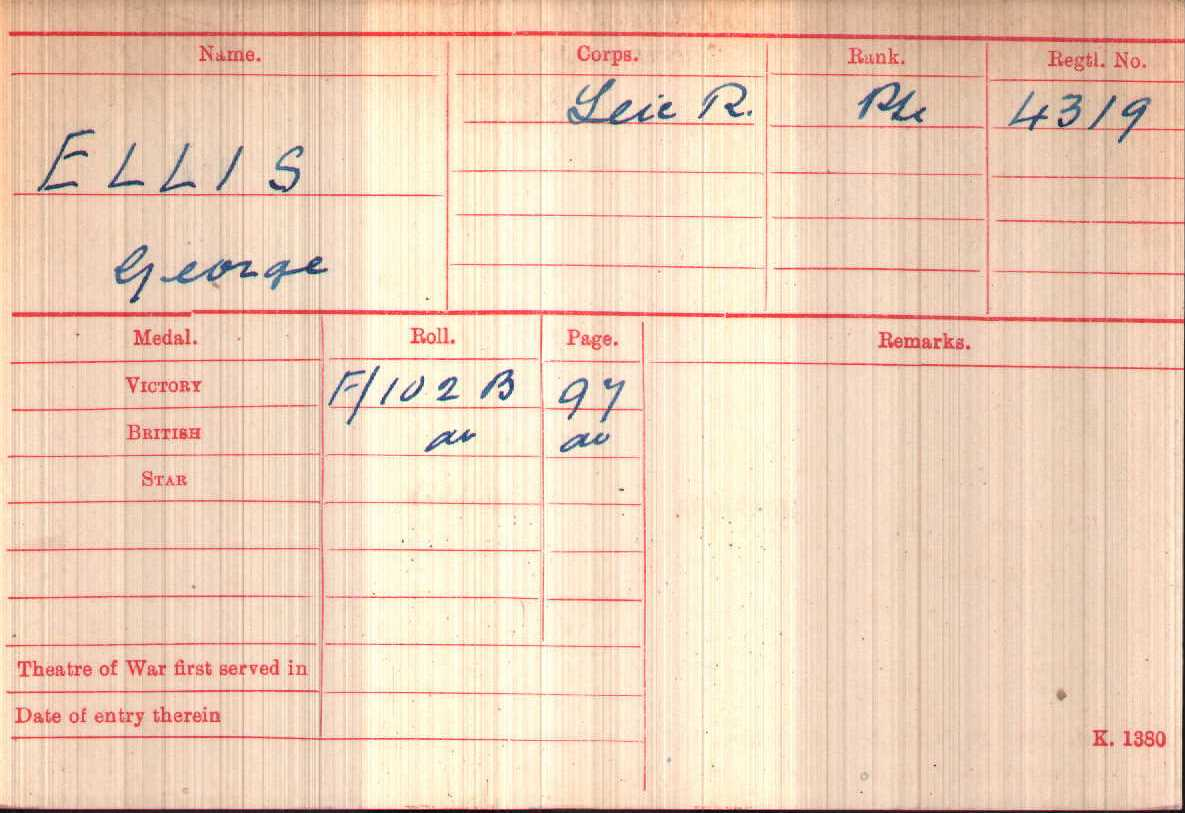 Name. Corps. Rank. Regtl. No.
Leic R. Pte 4319
ELLIS
George
Medal. Roll. Page. Remarks.
VICTORY F/102 B 97
BRITISH do do
STAR
Theatre of War first served in
Date of entry therein
K. 1380